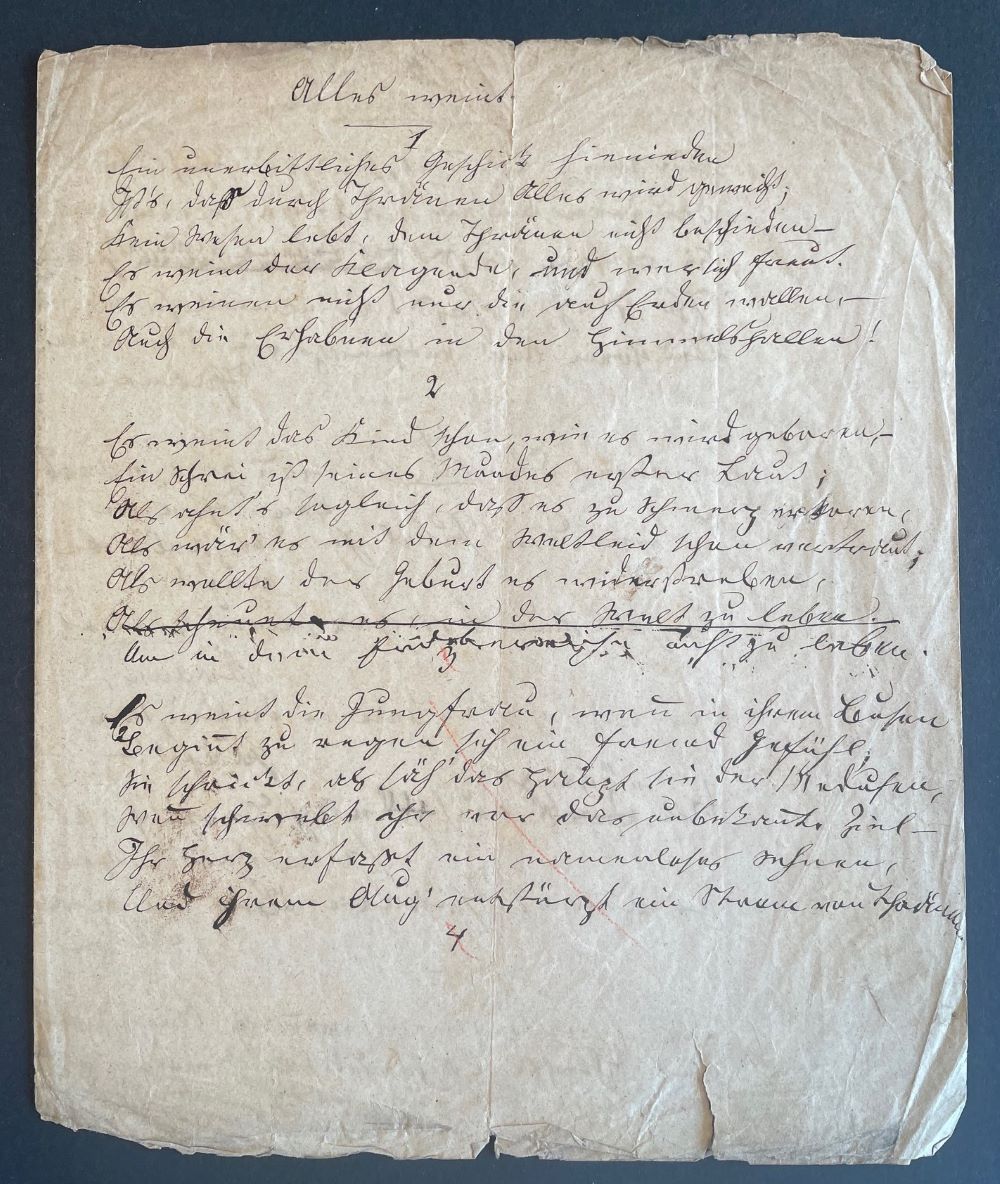 Alles weint.
1
Ein unerbittliches Geschick hienieden
Ist's, daß durch Thränen Alles wird geweiht;
Kein Wesen lebt, dem Thränen nicht beschieden –
Es weint der Klagende, und wer sich freut.
Es weinen nicht nur die auf Erden wallen, –
Auch die Erhabnen in den Himmelshallen!
2
Es weint das Kind schon, wie es wird geboren, –
Ein Schrei ist seines Mundes erster Laut;
Als ahnt's sogleich, daß es zu Schmerz erkoren,
Als wär' es mit dem Weltleid schon vertraut;
Als wollte der Geburt es widerstreben,
Als scheute es, in der Welt zu leben.
Um in nicht zu leben.
3
Es weint die Jungfrau, wen̄ in ihrem Busen
Begin̄t zu regen sich ein fremd Gefühl;
Sie schrickt, als säh' das Haupt sie der Medusen,
Wen̄ schwebt ihr vor das unbekan̄te Ziel –
Ihr Herz erfaßt ein namenloses Sehnen,
Und ihrem Aug' entstürzt ein Strom von Thränen
4